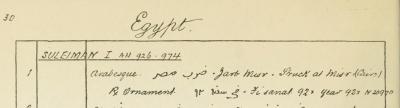 30
Egypt.
SULEIMAN I AH 926-974
1 Arabesque. ضرب مصر Zarb Misr. Struck at Misr (Cairo)
R Ornament في سنة ٩٢ Fi sanat 92 Year 92